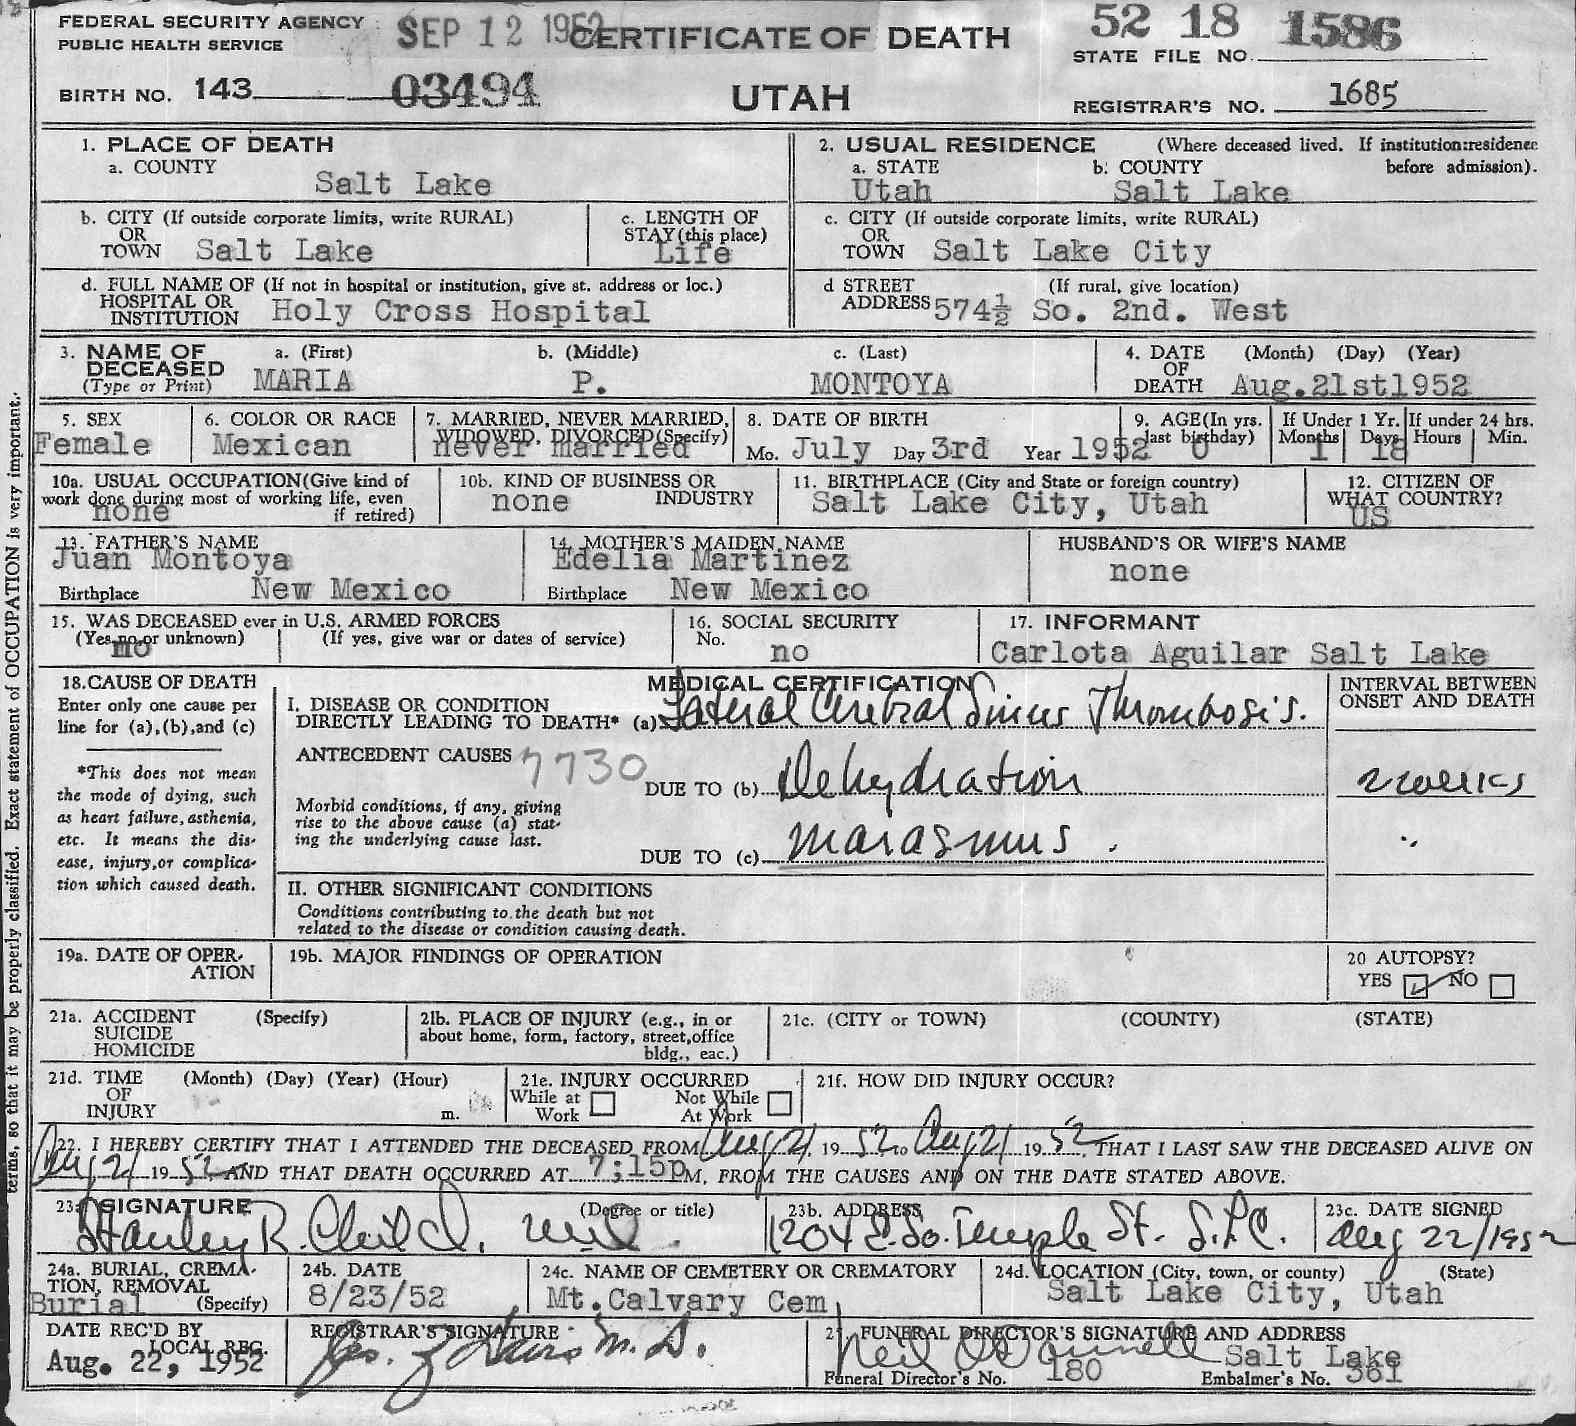 FEDERAL SECURITY AGENCY
PUBLIC HEALTH SERVICE
SEP 12 1952
CERTIFICATE OF DEATH
52 18 1586
STATE FILE NO.
BIRTH NO. 143 03494
UTAH
REGISTRAR'S NO. 1685
1. PLACE OF DEATH
a. COUNTY
Salt Lake
2. USUAL RESIDENCE (Where deceased lived. If institution:residence before admission).
a. STATE
Utah
b. COUNTY
Salt Lake
b. CITY (If outside corporate limits, write RURAL)
OR
TOWN Salt Lake
c. LENGTH OF
STAY (this place)
Life
c. CITY (If outside corporate limits, write RURAL)
OR
TOWN Salt Lake City
d. FULL NAME OF (If not in hospital or institution, give st. address or loc.)
HOSPITAL OR
INSTITUTION Holy Cross Hospital
d STREET (If rural, give location)
ADDRESS 574½ So. 2nd. West
3. NAME OF
DECEASED
(Type or Print)
a. (First)
MARIA
b. (Middle)
P.
c. (Last)
MONTOYA
4. DATE (Month) (Day) (Year)
OF
DEATH Aug.21st1952
5. SEX
Female
6. COLOR OR RACE
Mexican
7. MARRIED, NEVER MARRIED,
WIDOWED, DIVORCED (Specify)
never married
8. DATE OF BIRTH
Mo. July Day 3rd Year 1952
9. AGE (In yrs.
last birthday)
0
If Under 1 Yr.
Months Days
1 18
If under 24 hrs.
Hours Min.
10a. USUAL OCCUPATION (Give kind of
work done during most of working life, even
if retired)
none
10b. KIND OF BUSINESS OR
INDUSTRY
none
11. BIRTHPLACE (City and State or foreign country)
Salt Lake City, Utah
12. CITIZEN OF
WHAT COUNTRY?
US
13. FATHER'S NAME
Juan Montoya
Birthplace New Mexico
14. MOTHER'S MAIDEN NAME
Edelia Martinez
Birthplace New Mexico
HUSBAND'S OR WIFE'S NAME
none
15. WAS DECEASED ever in U.S. ARMED FORCES
(Yes, no or unknown) (If yes, give war or dates of service)
no
16. SOCIAL SECURITY
No.
no
17. INFORMANT
Carlota Aguilar Salt Lake
18. CAUSE OF DEATH
Enter only one cause per
line for (a), (b), and (c)
*This does not mean
the mode of dying, such
as heart failure, asthenia,
etc. It means the dis-
ease, injury, or complica-
tion which caused death.
MEDICAL CERTIFICATION
I. DISEASE OR CONDITION
DIRECTLY LEADING TO DEATH* (a) Lateral Cerebral Sinus Thrombosis.
ANTECEDENT CAUSES 7730
DUE TO (b) Dehydration
Morbid conditions, if any, giving
rise to the above cause (a) stat-
ing the underlying cause last.
DUE TO (c) marasmus.
II. OTHER SIGNIFICANT CONDITIONS
Conditions contributing to the death but not
related to the disease or condition causing death.
INTERVAL BETWEEN
ONSET AND DEATH
2 weeks
19a. DATE OF OPER-
ATION
19b. MAJOR FINDINGS OF OPERATION
20 AUTOPSY?
YES ☑ NO ☐
21a. ACCIDENT (Specify)
SUICIDE
HOMICIDE
21b. PLACE OF INJURY (e.g., in or
about home, form, factory, street, office
bldg., eac.)
21c. (CITY or TOWN) (COUNTY) (STATE)
21d. TIME (Month) (Day) (Year) (Hour)
OF
INJURY m.
21e. INJURY OCCURRED
While at Work ☐ Not While At Work ☐
21f. HOW DID INJURY OCCUR?
22. I HEREBY CERTIFY THAT I ATTENDED THE DECEASED FROM Aug 21, 1952 to Aug 21 1952, THAT I LAST SAW THE DECEASED ALIVE ON
Aug 21 1952, AND THAT DEATH OCCURRED AT 7:15p M, FROM THE CAUSES AND ON THE DATE STATED ABOVE.
23a SIGNATURE (Degree or title)
Stanley R. Child, M.D.
23b. ADDRESS
1204 E. So. Temple St. S.L.C.
23c. DATE SIGNED
Aug 22/1952
24a. BURIAL, CREMA-
TION, REMOVAL
(Specify)
Burial
24b. DATE
8/23/52
24c. NAME OF CEMETERY OR CREMATORY
Mt. Calvary Cem.
24d. LOCATION (City, town, or county) (State)
Salt Lake City, Utah
DATE REC'D BY
LOCAL REG.
Aug. 22, 1952
REGISTRAR'S SIGNATURE
M.D.
FUNERAL DIRECTOR'S SIGNATURE AND ADDRESS
Neil O'Donnell Salt Lake
Funeral Director's No. 180 Embalmer's No. 361
terms, so that it may be properly classified. Exact statement of OCCUPATION is very important.